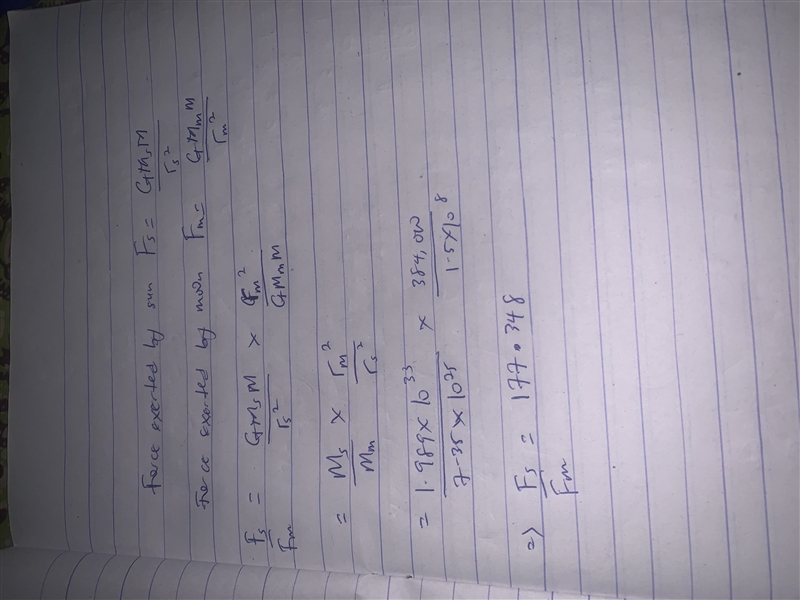 Force exerted by sun Fs = GMsM / rs²
Force exerted by moon Fm = GMmM / rm²
Fs / Fm = GMsM / rs² × rm² / GMmM
= Ms / Mm × rm² / rs²
= 1.989 × 10³³ / 7.35 × 10²⁵ × 384,000 / 1.5×10⁸
=> Fs / Fm = 177.348